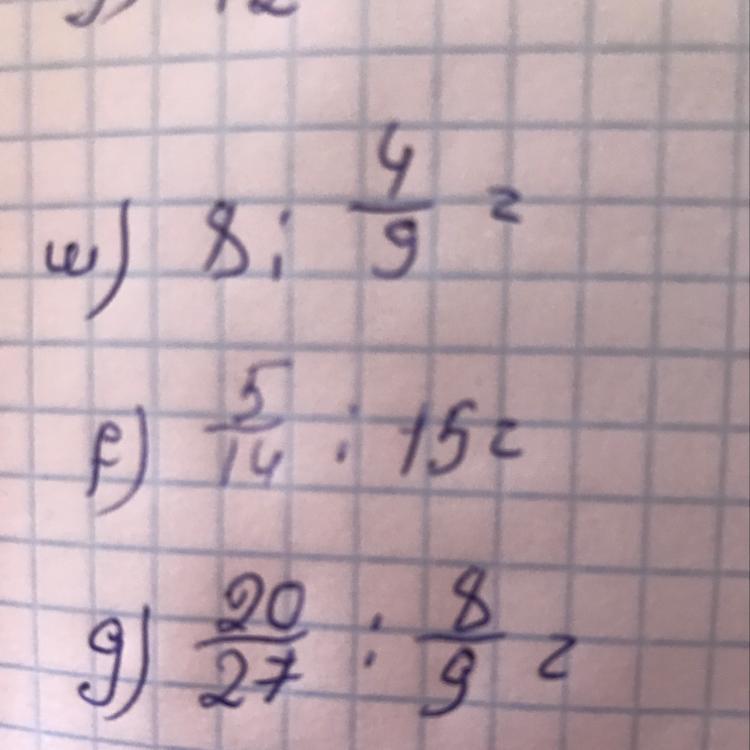 ш) 8 : 4/9 =
f) 5/14 : 15 =
g) 20/27 : 8/9 =